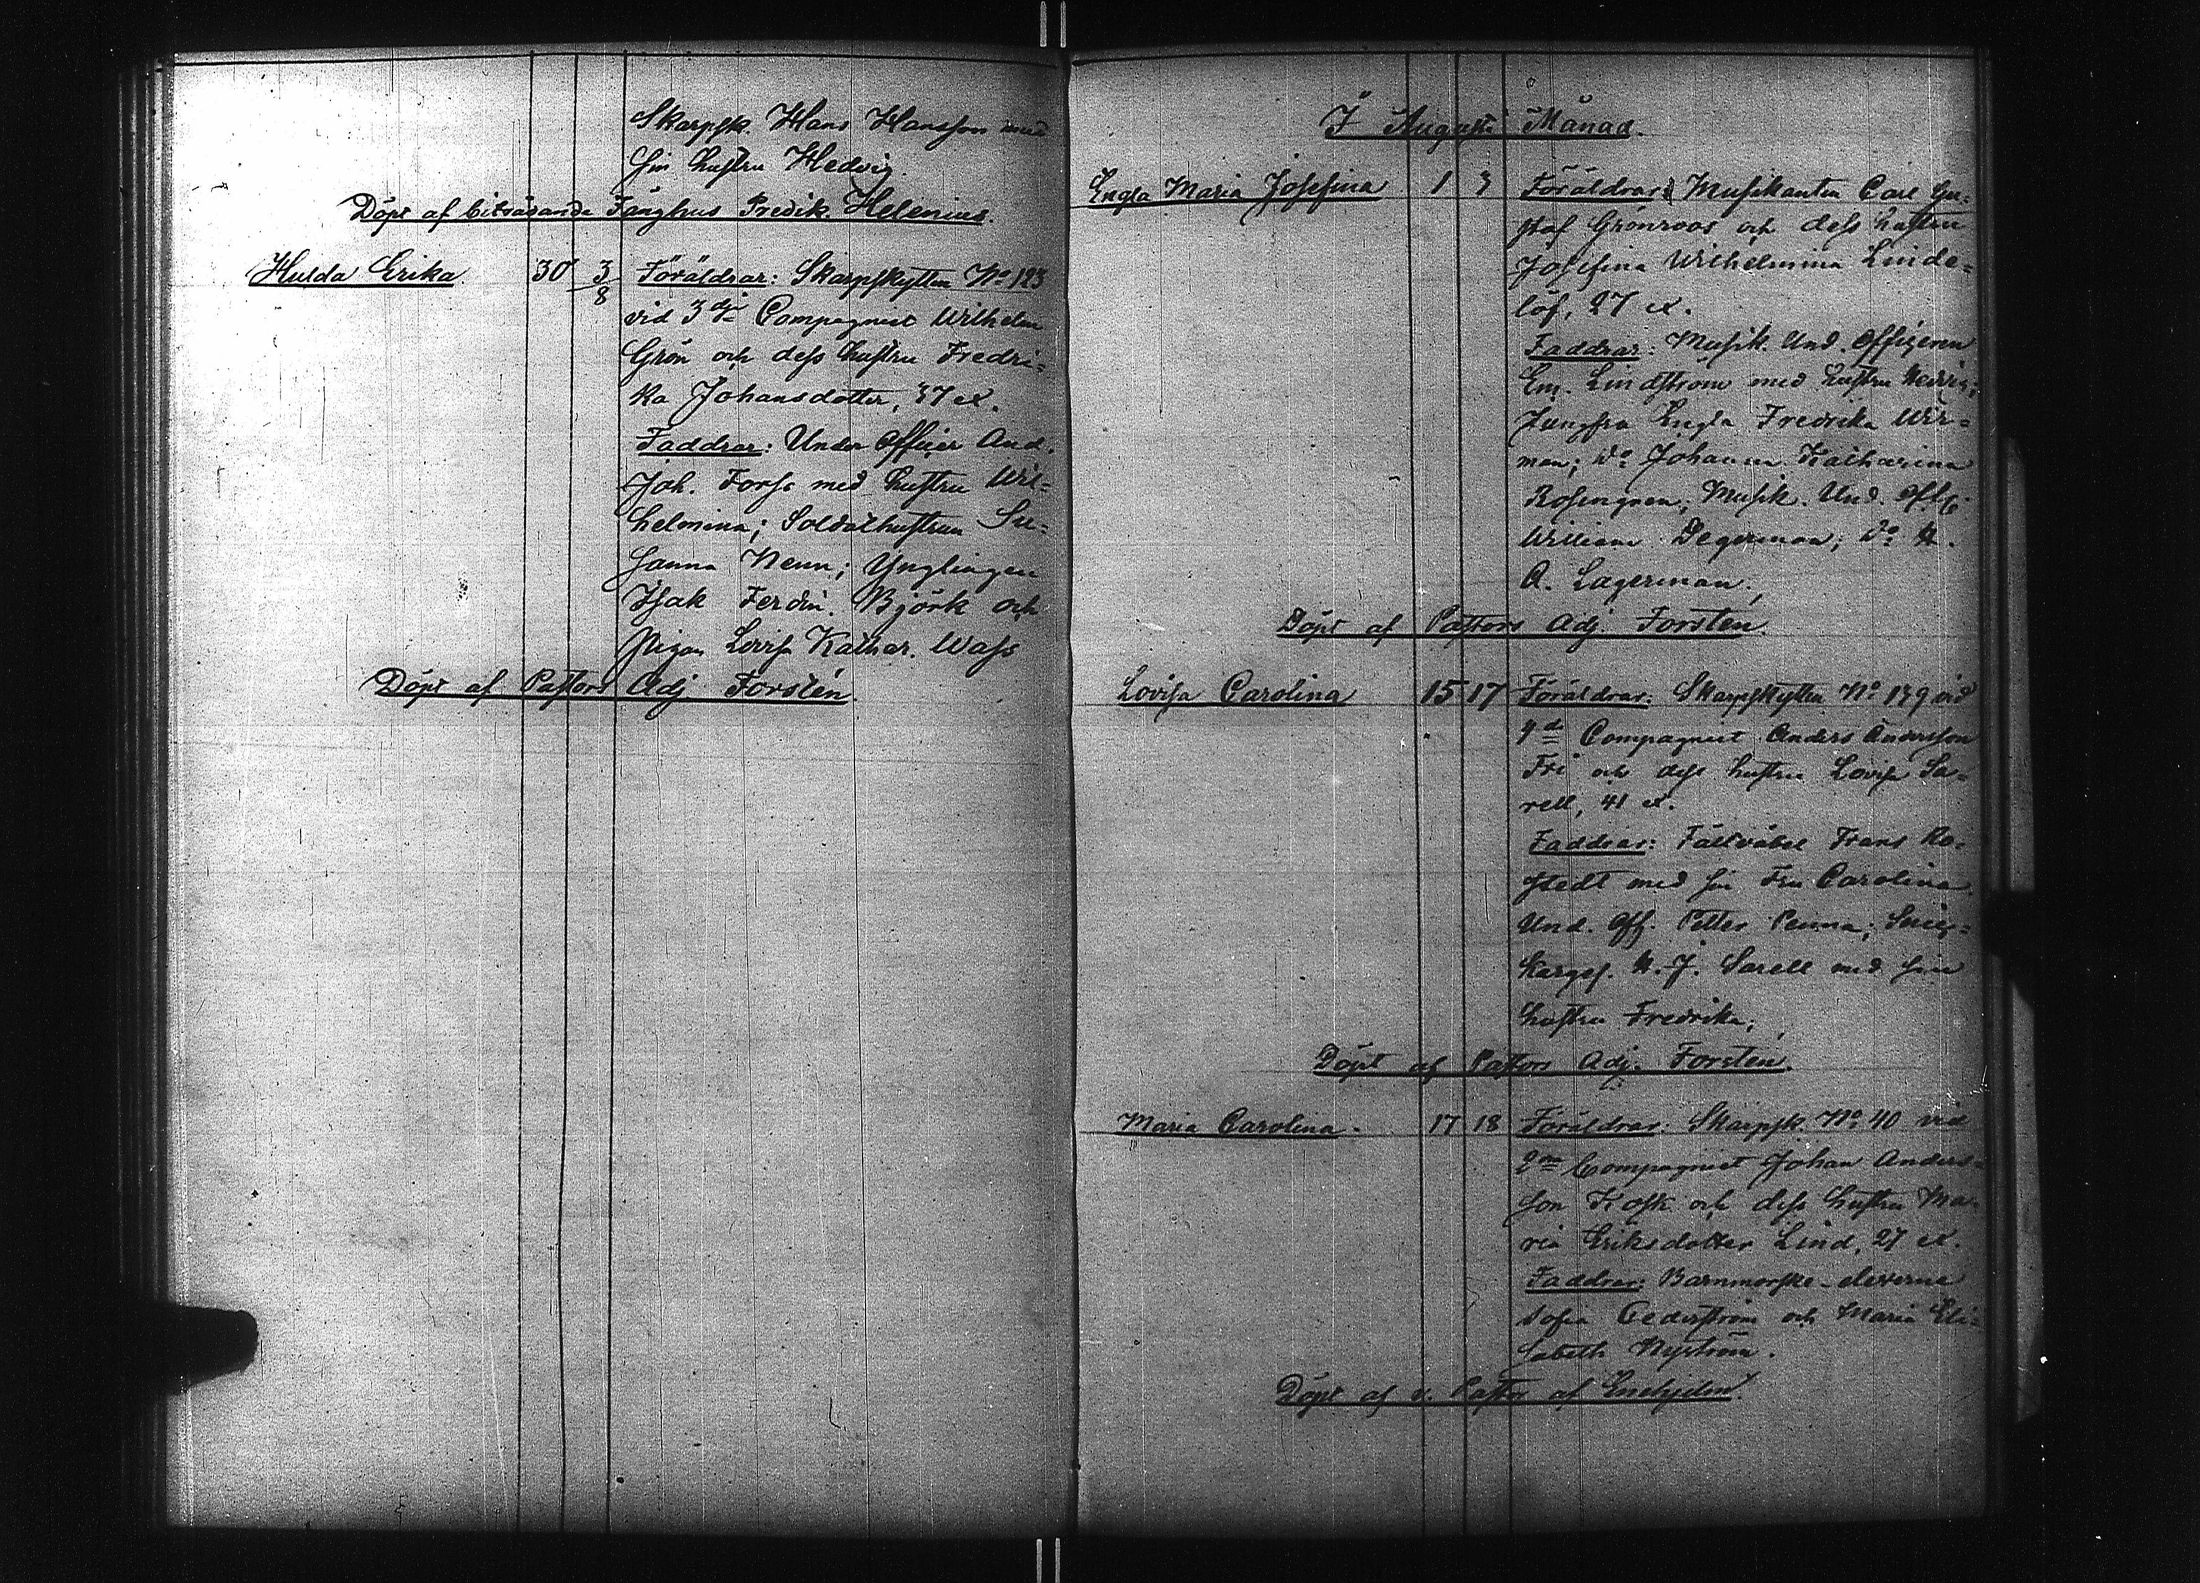 Skarpsk. Hans Hansson med
sin hustru Hedvig.
Döpt af biträdande Fånghus Predik. Helenius.
Hulda Erika 30 3/8 Föräldrar: Skarpskytten No 123
vid 3dje Compagniet Wilhelm
Grön och dess hustru Fredri-
ka Johansdotter, 37 år.
Faddrar: Under Officier And.
Joh. Forss med hustru Wil-
helmina; Soldathustrun Su-
sanna Nenn; Ynglingen
Isak Ferdin. Björk och
Pigan Lovisa Kathar. Wass
Döpt af Pastors Adj Forstén.
I Augusti Månad.
Engla Maria Josefina 1 3 Föräldrar: Musikanten Carl Gu-
staf Grönroos och dess hustru
Josefina Wilhelmina Linde-
löf, 27 år.
Faddrar: Musik. Und. Officeren
Em. Lindström med hustru Hedvig;
Jungfru Engla Fredrika Wir-
man; do Johanna Katharina
Rosengren; Musik. Und. Offic.
William Degerman; do
A. Lagerman.
Döpt af Pastors Adj. Forstén.
Lovisa Carolina 15 17 Föräldrar: Skarpskytten No 179 vid
4de Compagniet Anders Andersson
Fri och dess hustru Lovisa Sa-
rell, 41 år.
Faddrar: Fältväbel Frans Ro-
stedt med sin Fru Carolina
Und. Off. Petter Penna;
N. J. Sarell med sin
hustru Fredrika;
Döpt af Pastors Adj. Forstén.
Maria Carolina. 17 18 Föräldrar: Skarpsk. No 40 vid
2dra Compagniet Johan Anders-
son Kosk och dess hustru Ma-
ria Eriksdotter Lind, 27 år.
Faddrar: Barnmorske-eleverna
Sofia Cederström och Maria Eli-
sabeth Nyström.
Döpt af v. Pastor af Enehjelm.